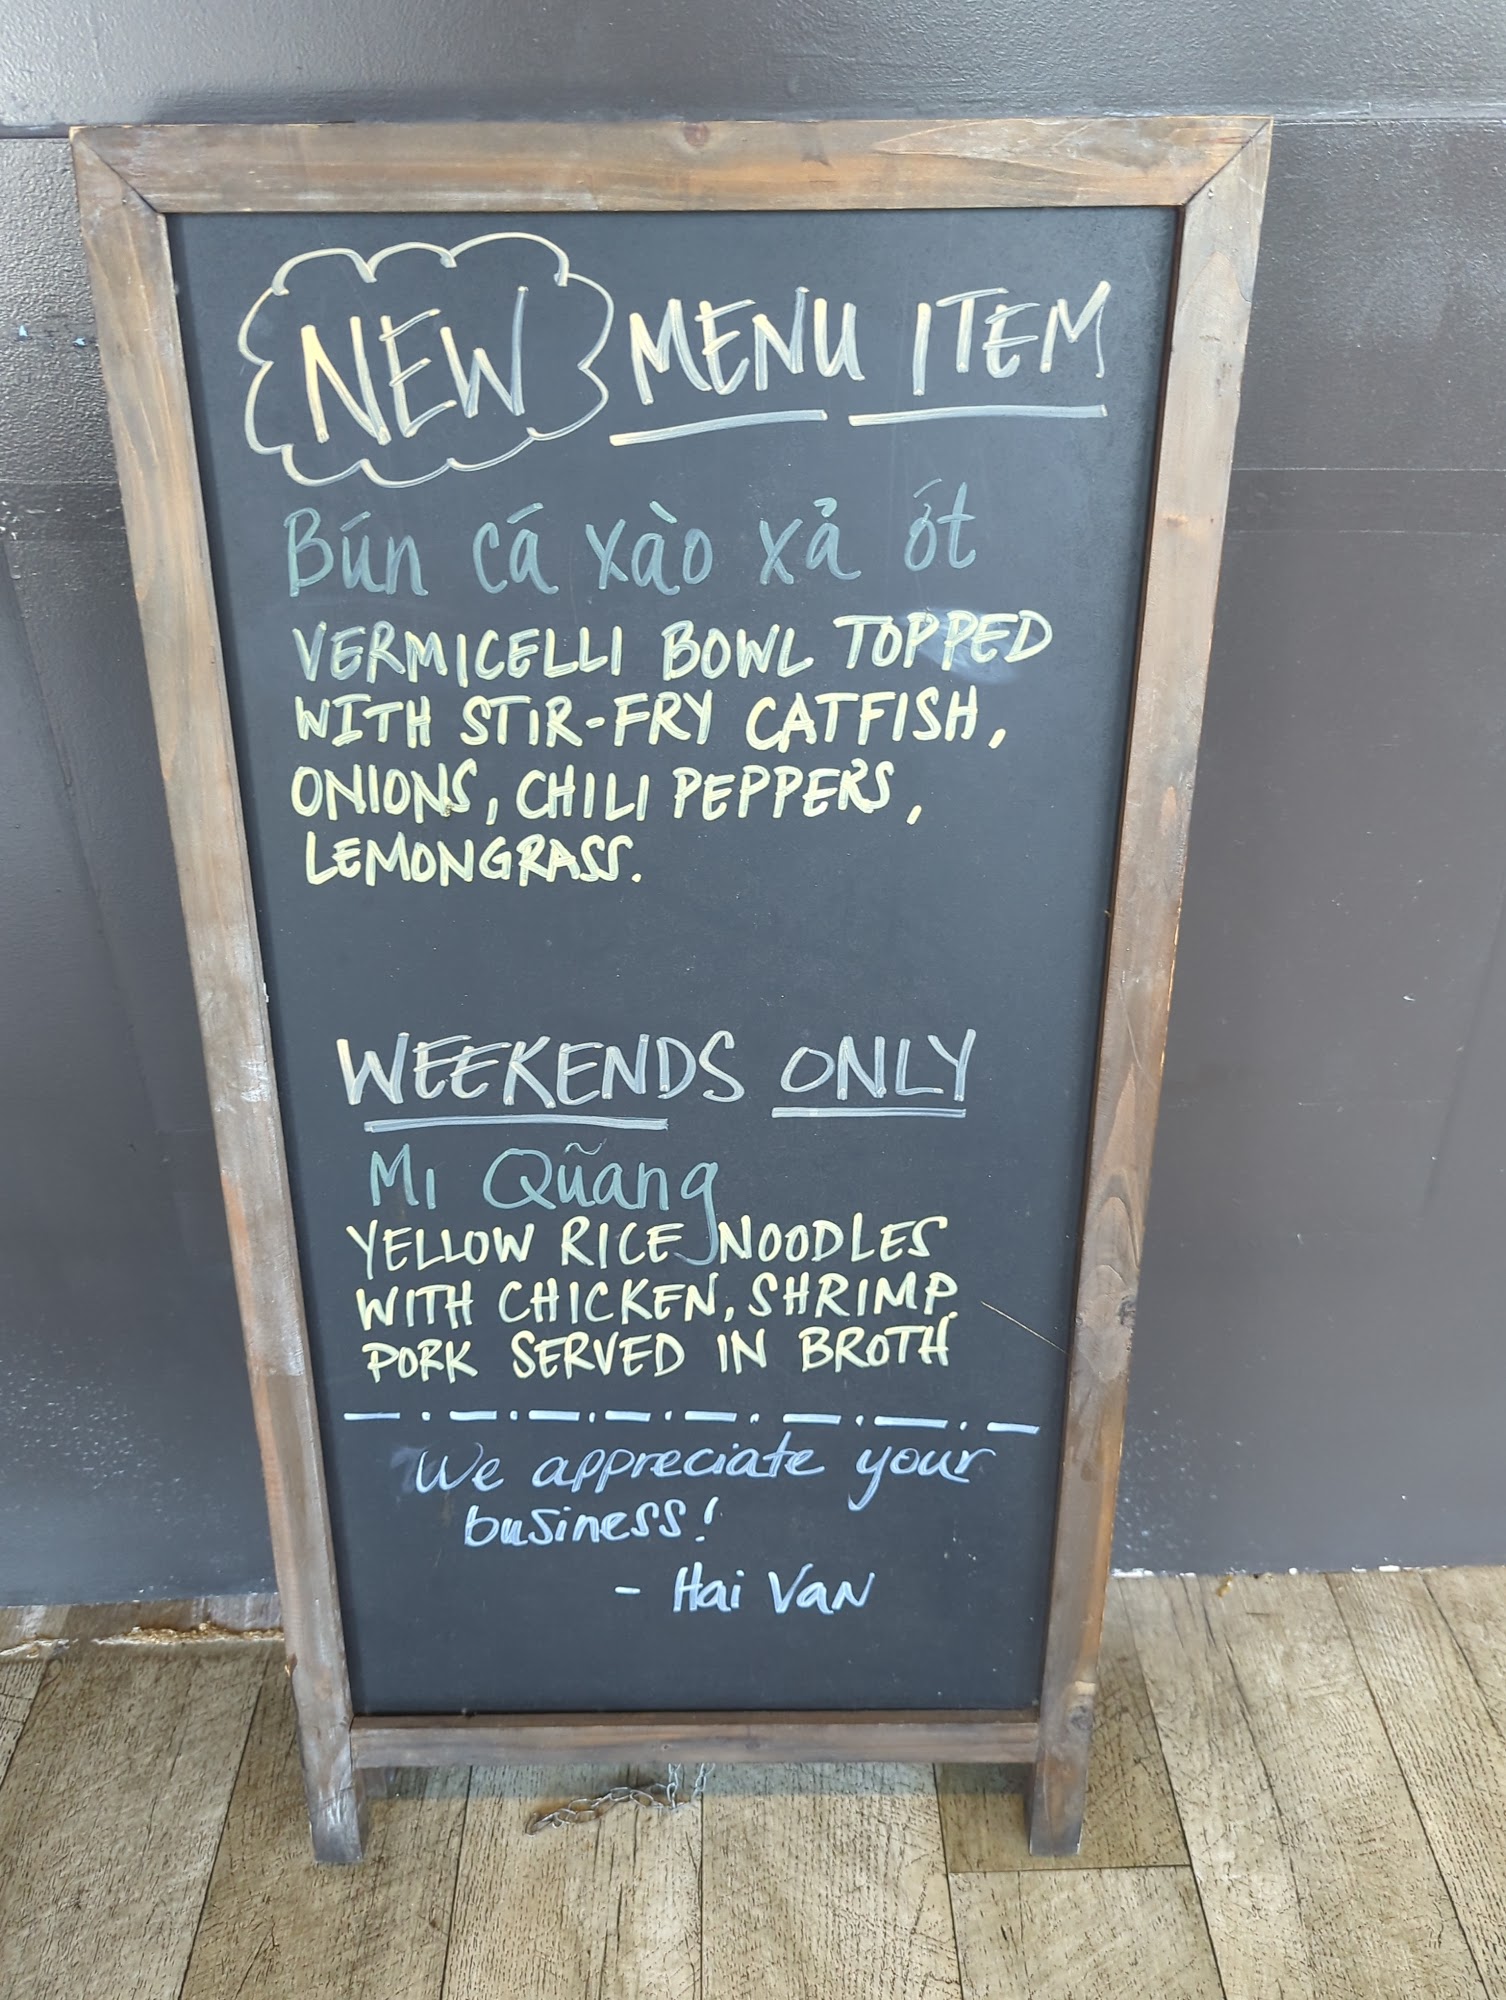 NEW MENU ITEM
Bún cá xào xả ớt
VERMICELLI BOWL TOPPED
WITH STIR-FRY CATFISH,
ONIONS, CHILI PEPPERS,
LEMONGRASS.
WEEKENDS ONLY
Mı Qũang
YELLOW RICE NOODLES
WITH CHICKEN, SHRIMP,
PORK SERVED IN BROTH
We appreciate your
business!
- Hai Van